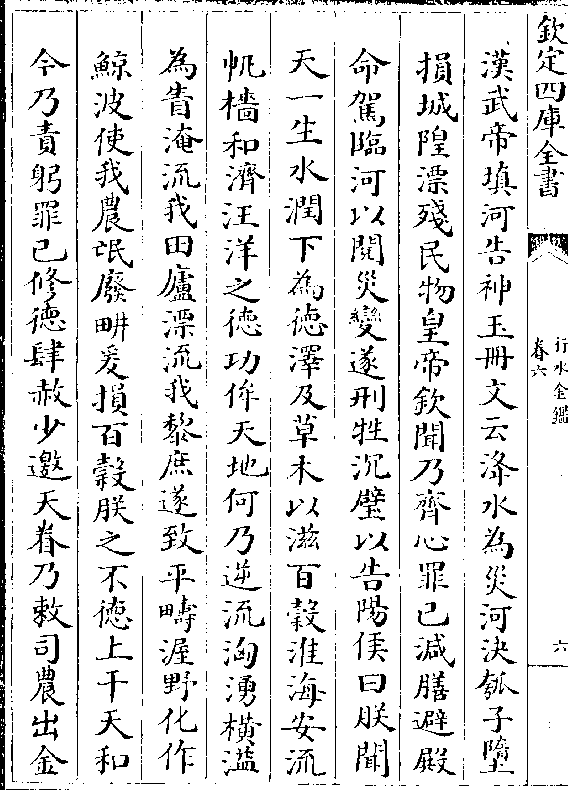 欽定四庫全書
行水金鑑
卷六
六
漢武帝填河告神玉冊文云洚水為災河決瓠子墮
損城隍漂殘民物皇帝欽聞乃齊心罪已減膳避殿
命駕臨河以閱災變遂刑牲沉璧以告陽侯曰朕聞
天一生水潤下為徳澤及草木以滋百穀淮海安流
帆檣和濟汪洋之徳功侔天地何乃逆流洶湧橫溢
為眚淹流我田廬漂流我黎庶遂致平疇渥野化作
鯨波使我農氓廢畊爰損百穀朕之不徳上干天和
今乃責躬罪已修徳肆赦少邀天眷乃敕司農出金